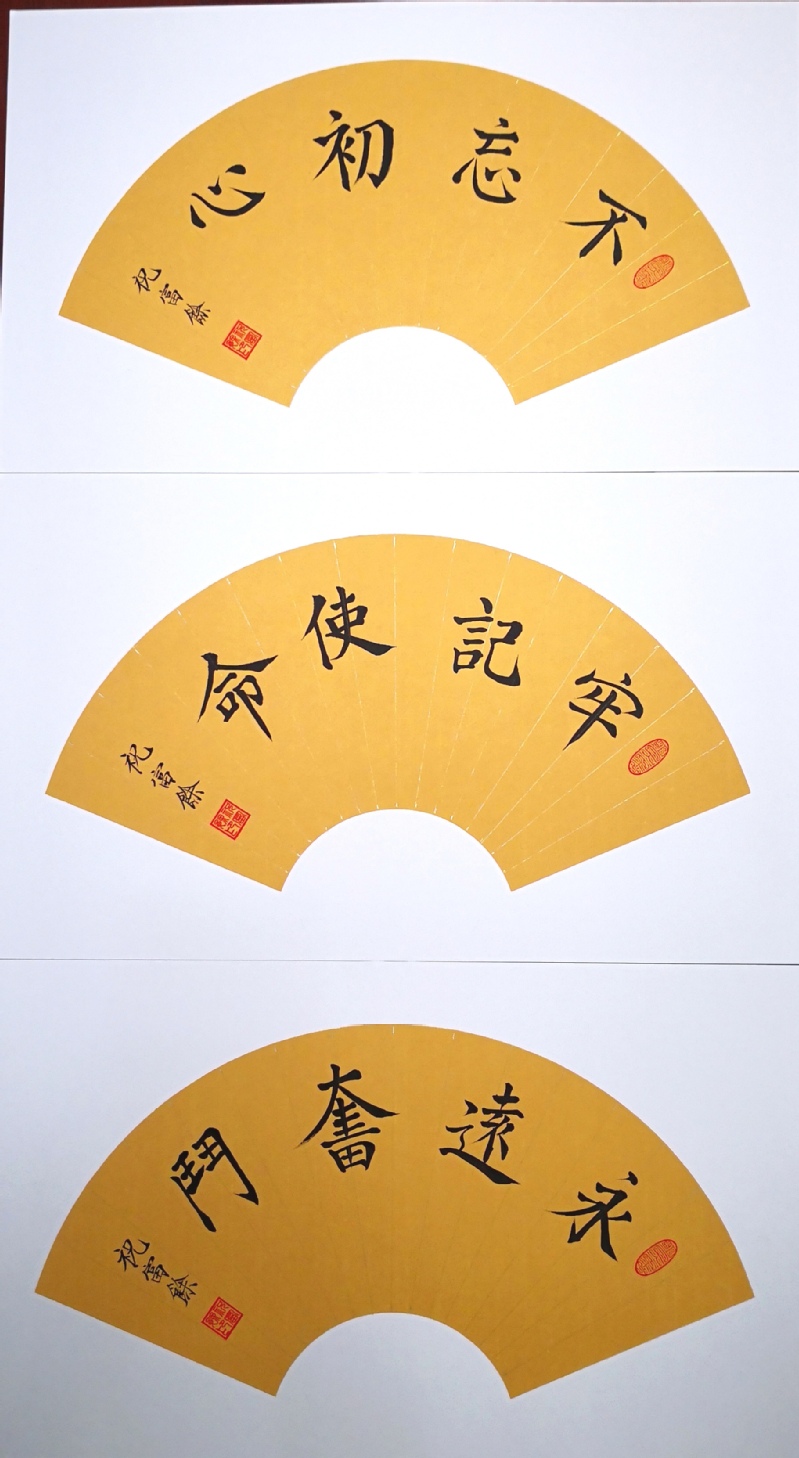 不忘初心
祝富餘
牢記使命
祝富餘
永遠奮鬥
祝富餘